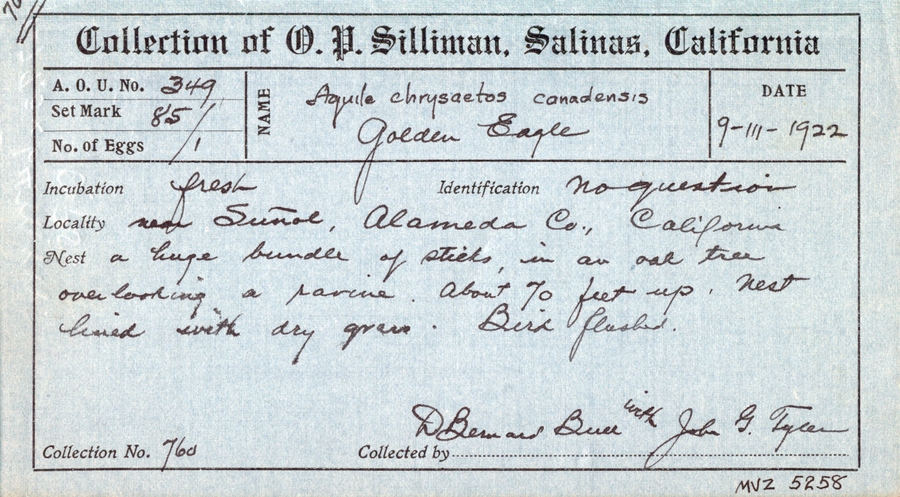 Collection of O. P. Silliman, Salinas, California
A. O. U. No. 349
Set Mark 85/1
No. of Eggs 1
NAME
Aquile chrysaetos canadensis
Golden Eagle
DATE
9-III-1922
Incubation fresh
Identification no question
Locality near Suñol, Alameda Co., California
Nest a huge bundle of sticks, in an oak tree
overlooking a ravine. About 70 feet up. Nest
lined with dry grass. Bird flushed.
D Bernard Bull with John G. Tyler
Collection No. 760
Collected by
MVZ 5258